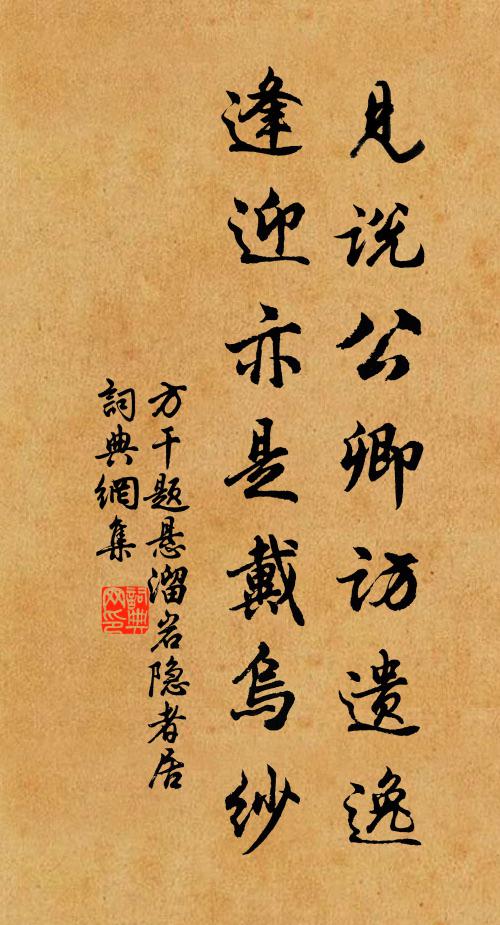 见说公卿访遗逸
逢迎亦是戴乌纱
方干题悬溜岩隐者居
詞典網集
詞典網印